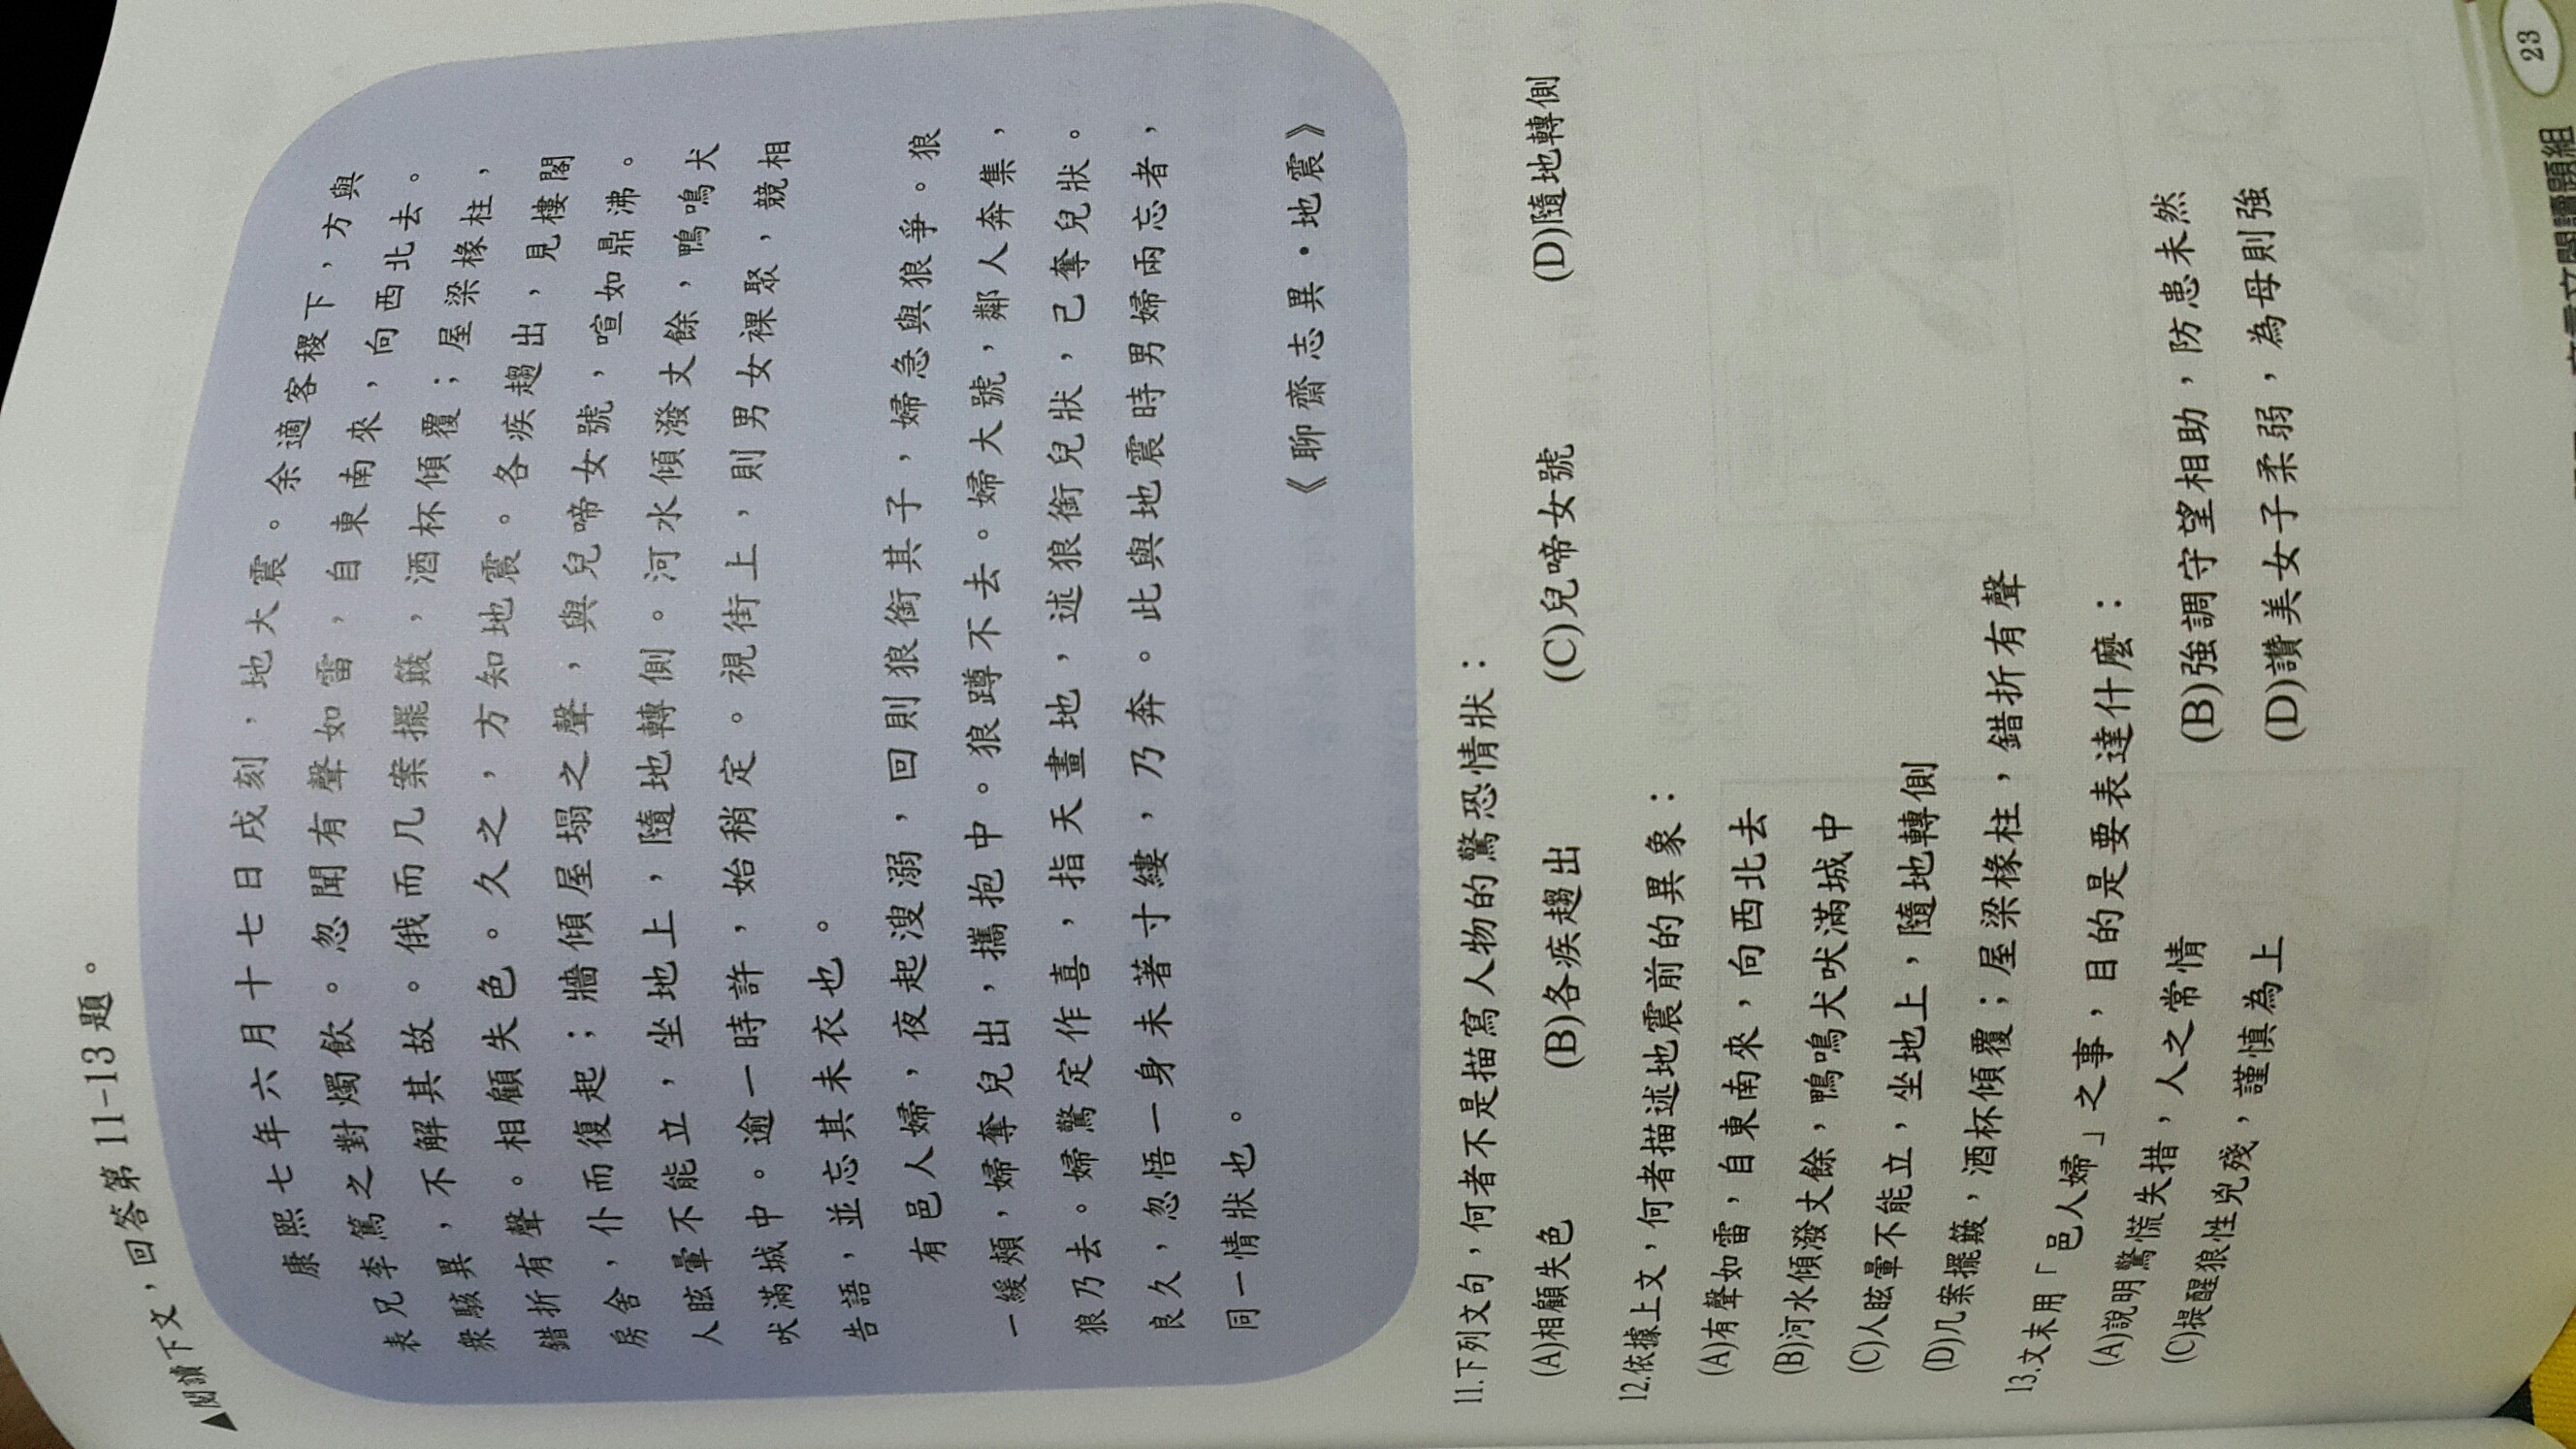 ▲閱讀下文，回答第11-13題。
康熙七年六月十七日戌刻，地大震。余適客稷下，方與
表兄李篤之對燭飲。忽聞有聲如雷，自東南來，向西北去。
眾駭異，不解其故。俄而几案擺簸，酒杯傾覆；屋梁椽柱，
錯折有聲。相顧失色。久之，方知地震。各疾趨出，見樓閣
房舍，仆而復起；牆傾屋塌之聲，與兒啼女號，喧如鼎沸。
人眩暈不能立，坐地上，隨地轉側。河水傾潑丈餘，鴨鳴犬
吠滿城中。逾一時許，始稍定。視街上，則男女裸聚，競相
告語，並忘其未衣也。
有邑人婦，夜起溲溺，回則狼銜其子，婦急與狼爭。狼
一緩頰，婦奪兒出，攜抱中。狼蹲不去。婦大號，鄰人奔集，
狼乃去。婦驚定作喜，指天畫地，述狼銜兒狀，己奪兒狀。
良久，忽悟一身未著寸縷，乃奔。此與地震時男婦兩忘者，
同一情狀也。
《聊齋志異•地震》
11.下列文句，何者不是描寫人物的驚恐情狀：
(A)相顧失色 (B)各疾趨出 (C)兒啼女號 (D)隨地轉側
12.依據上文，何者描述地震前的異象：
(A)有聲如雷，自東南來，向西北去
(B)河水傾潑丈餘，鴨鳴犬吠滿城中
(C)人眩暈不能立，坐地上，隨地轉側
(D)几案擺簸，酒杯傾覆；屋梁椽柱，錯折有聲
13.文末用「邑人婦」之事，目的是要表達什麼：
(A)說明驚慌失措，人之常情 (B)強調守望相助，防患未然
(C)提醒狼性兇殘，謹慎為上 (D)讚美女子柔弱，為母則強
文閱讀題組
23